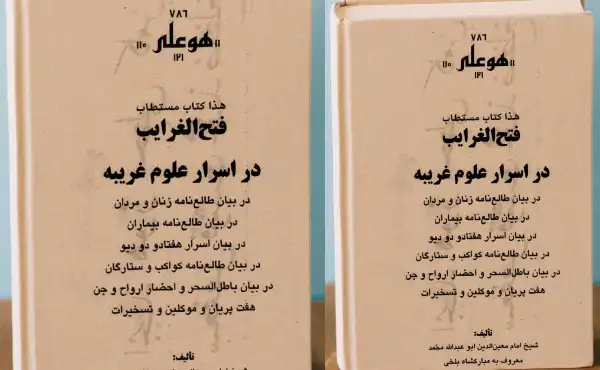 ۷۸۶
۱۱ هو علی ۱۱۰
۱۲۱
هذا کتاب مستطاب
فتح‌الغرایب
در اسرار علوم غریبه
در بیان طالع‌نامه زنان و مردان
در بیان طالع‌نامه بیماران
در بیان اسرار هفتادو دو دیو
در بیان طالع‌نامه کواکب و ستارگان
در بیان باطل‌السحر و احضار ارواح و جن
هفت پریان و موکلین و تسخیرات
تألیف:
۷۸۶
۱۱ هو علی ۱۱۰
۱۲۱
هذا کتاب مستطاب
فتح‌الغرایب
در اسرار علوم غریبه
در بیان طالع‌نامه زنان و مردان
در بیان طالع‌نامه بیماران
در بیان اسرار هفتادو دو دیو
در بیان طالع‌نامه کواکب و ستارگان
در بیان باطل‌السحر و احضار ارواح و جن
هفت پریان و موکلین و تسخیرات
تألیف:
شیخ امام معین‌الدین ابو عبدالله محمد
معروف به مبارکشاه بلخی